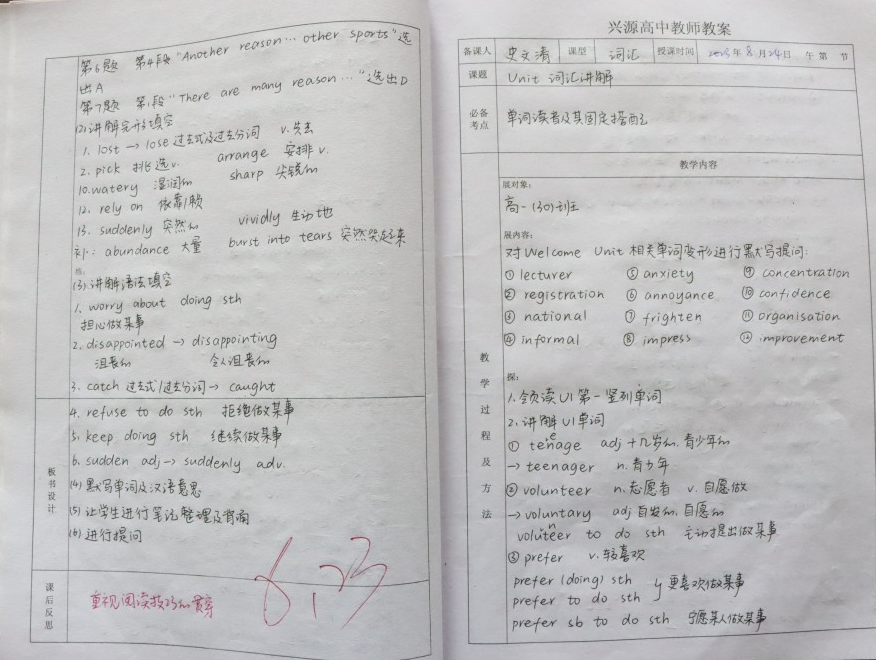 第6题 第4段 "Another reason… other sports" 选
出A
第7题 第1段 "There are many reason…" 选出D
(2)讲解完形填空
1. lost → lose 过去式及过去分词 v.失去
2. pick 挑选v. arrange 安排 v.
10.watery 湿润的 sharp 尖锐的
12. rely on 依靠/赖
13. suddenly 突然的 vividly 生动地
补: abundance 大量 burst into tears 突然哭起来
练:
(3)讲解语法填空
1. worry about doing sth
担心做某事
2. disappointed → disappointing
沮丧的 令人沮丧的
3. catch 过去式/过去分词 → caught
4. refuse to do sth 拒绝做某事
5. keep doing sth 继续做某事
6. sudden adj → suddenly adv.
(4)默写单词及汉语意思
(5)让学生进行笔记整理及背诵
(6)进行提问
板书设计
课后反思
重视阅读技巧的贯穿
兴源高中教师教案
备课人 史文清 课型 词汇 授课时间 年8月24日 午第 节
课题 Unit 词汇讲解
必备考点 单词读音及其固定搭配
教学内容
展对象:
高一(30)班
展内容:
对Welcome Unit 相关单词变形进行默写提问:
① lecturer ⑤ anxiety ⑨ concentration
② registration ⑥ annoyance ⑩ confidence
③ national ⑦ frighten ⑪ organisation
④ informal ⑧ impress ⑫ improvement
教学过程及方法
探:
1. 领读U1第一竖列单词
2. 讲解U1单词
① teenage adj 十几岁的,青少年的
→ teenager n.青少年
② volunteer n.志愿者 v.自愿做
→ voluntary adj 自发的,自愿的
volunteer to do sth 主动提出做某事
③ prefer v.较喜欢
prefer (doing) sth } 更喜欢做某事
prefer to do sth
prefer sb to do sth 宁愿某人做某事